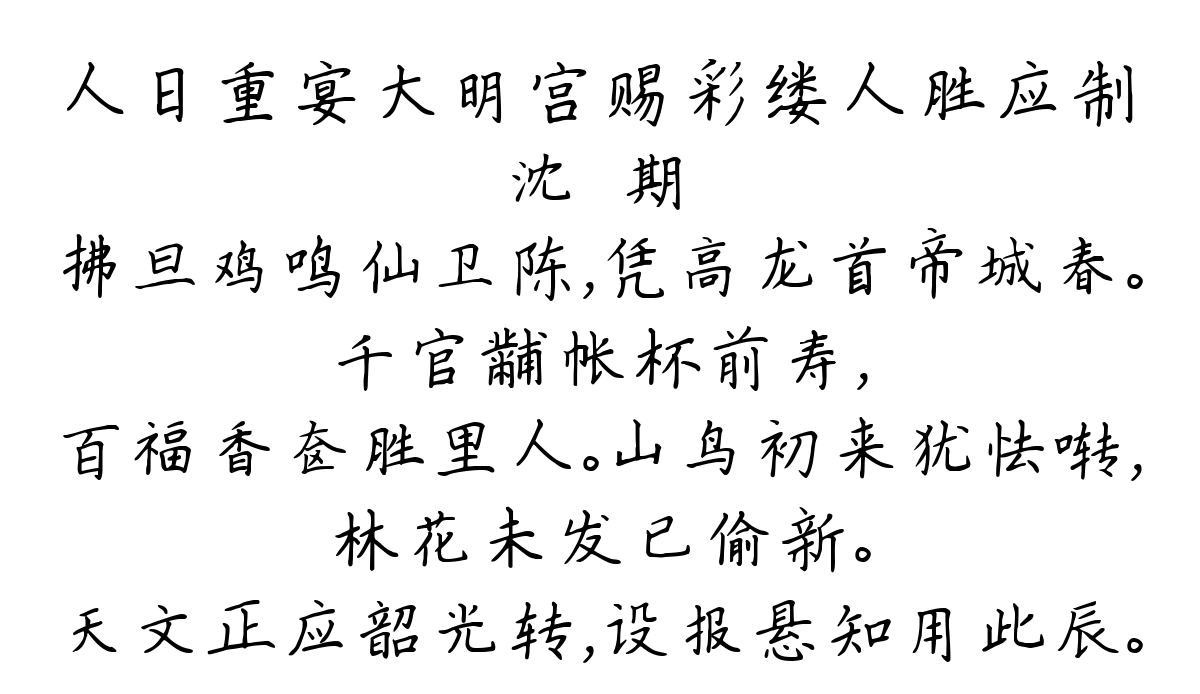 人日重宴大明宫赐彩缕人胜应制
沈 期
拂旦鸡鸣仙卫陈,凭高龙首帝城春。
千官黼帐杯前寿,
百福香奁胜里人。山鸟初来犹怯啭,
林花未发已偷新。
天文正应韶光转,设报悬知用此辰。